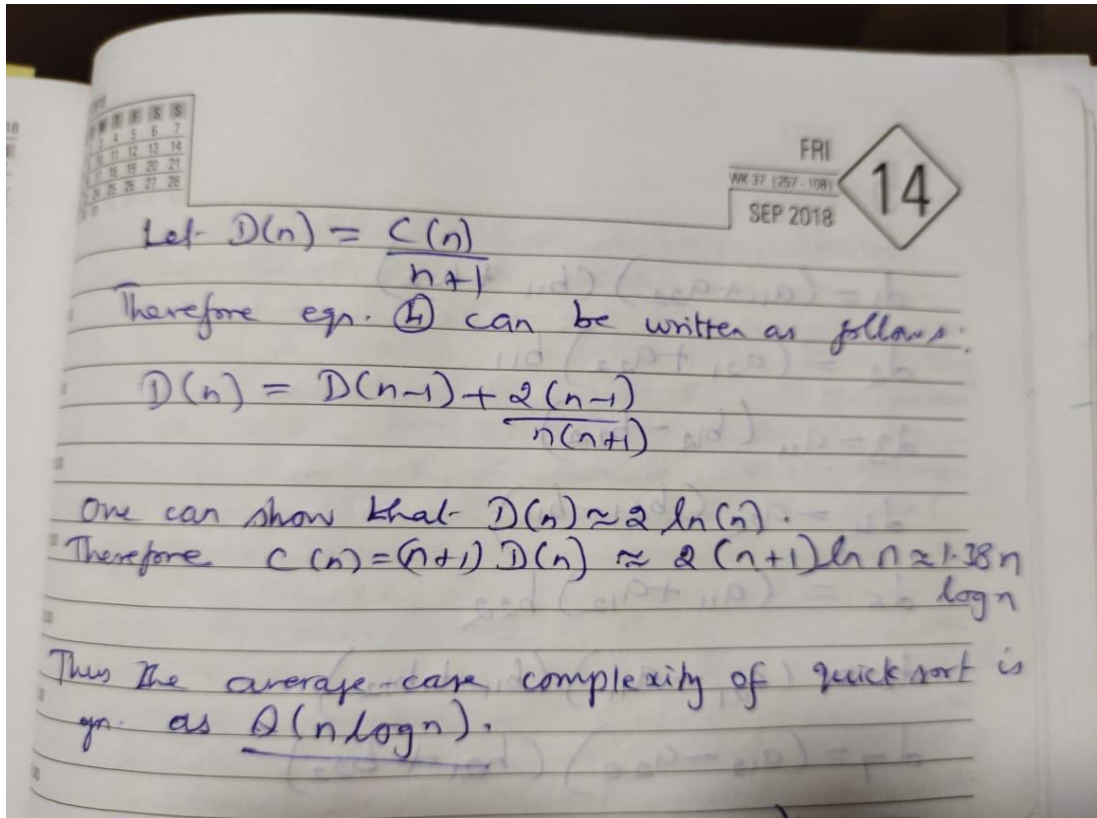 FRI
WK 37 (257 - 108)
14
SEP 2018
S S
5 6 7
11 12 13 14
18 19 20 21
24 25 26 27 28
Let D(n) = C(n)
n+1
Therefore eqn. ④ can be written as follows:
D(n) = D(n-1) + 2(n-1)
n(n+1)
One can show that D(n) ≈ 2 ln(n).
Therefore C(n) = (n+1) D(n) ≈ 2(n+1) ln n ≈ 1.38n
log n
Thus the average-case complexity of quick sort is
gn. as Θ(n log n).